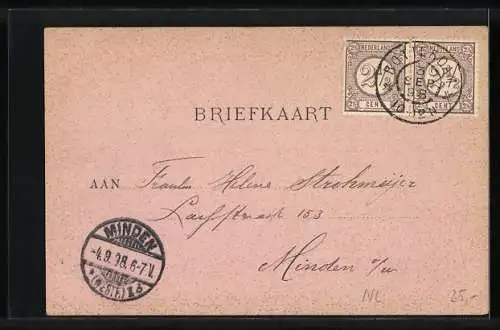 NEDERLAND NEDERLAND
2½ 2½
CENT CENT
ROTTERDAM
3 SEP 98
BRIEFKAART
AAN Fraulein Helene Strohmeijer
153
Minden i/w
MINDEN
-4.9.98.6-7 V.
(WESTF.)
NL 25,-